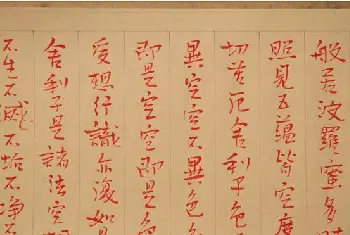 般若波羅蜜多時
照見五蘊皆空度
切苦厄舍利子色
異空空不異色
即是空空即是
受想行識亦復如是
舍利子是諸法空
不生不滅不垢不净